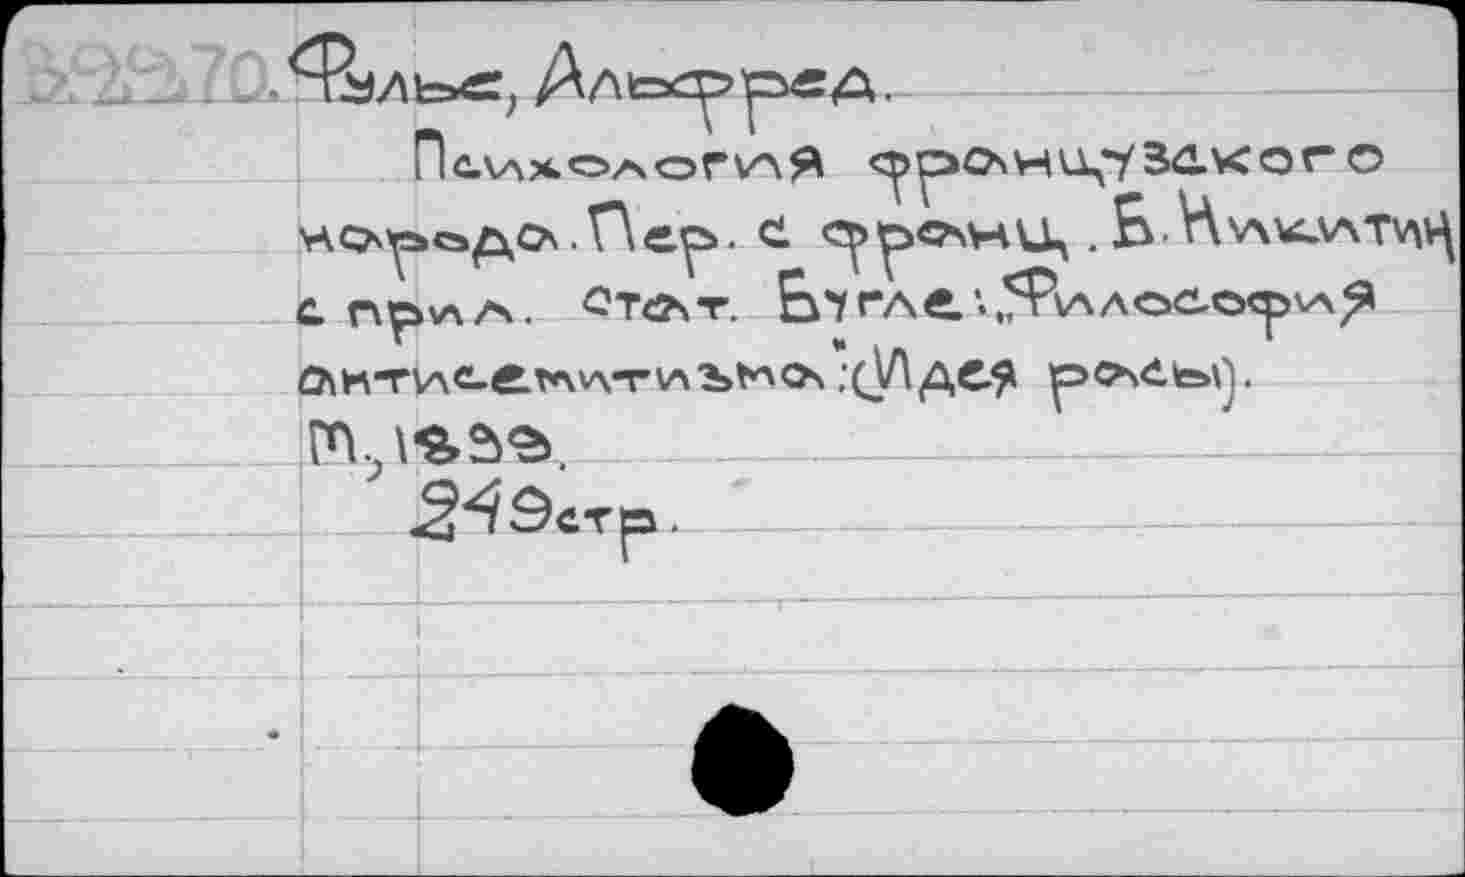 Фулье, Альфред.
Психология французского
народа. Пер. с франц. Б. Никитин
с прил. стат. Бугле: „Философия
антисемитизма": (Идея расы).
М., 1899.
249стр.